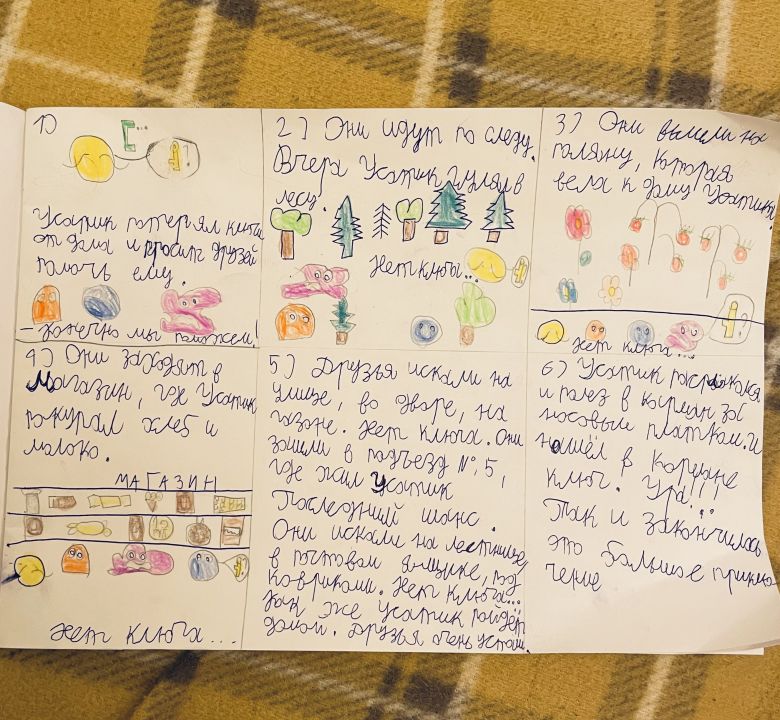 1)
Усатик потерял ключи
от дома и просит друзей
помочь ему.
- конечно мы поможем!
2) Они идут по следу.
Вчера Усатик гулял в
лесу.
Нет ключа...
3) Они вышли на
поляну, которая
вела к дому Усатика.
Нет ключа...
4) Они заходят в
Магазин, где Усатик
покупал хлеб и
молоко.
МАГАЗИН
Нет ключа...
5) Друзья искали на
улице, во дворе, на
газоне. Нет ключа. Они
зашли в подъезд №5,
где жил Усатик
Последний шанс.
Они искали на лестнице,
в почтовом ящике, под
ковриками. Нет ключа...
Как же Усатик пойдёт
домой. Друзья очень устали.
6) Усатик расплакался
и полез в карман за
носовым платком. И
нашёл в кармане
ключ! Ура!!!
Так и закончилось
это большое приклю
чение